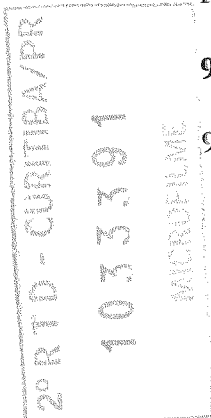 2º RTD - CURITIBA/PR
1033391
MICROFILME
9
9